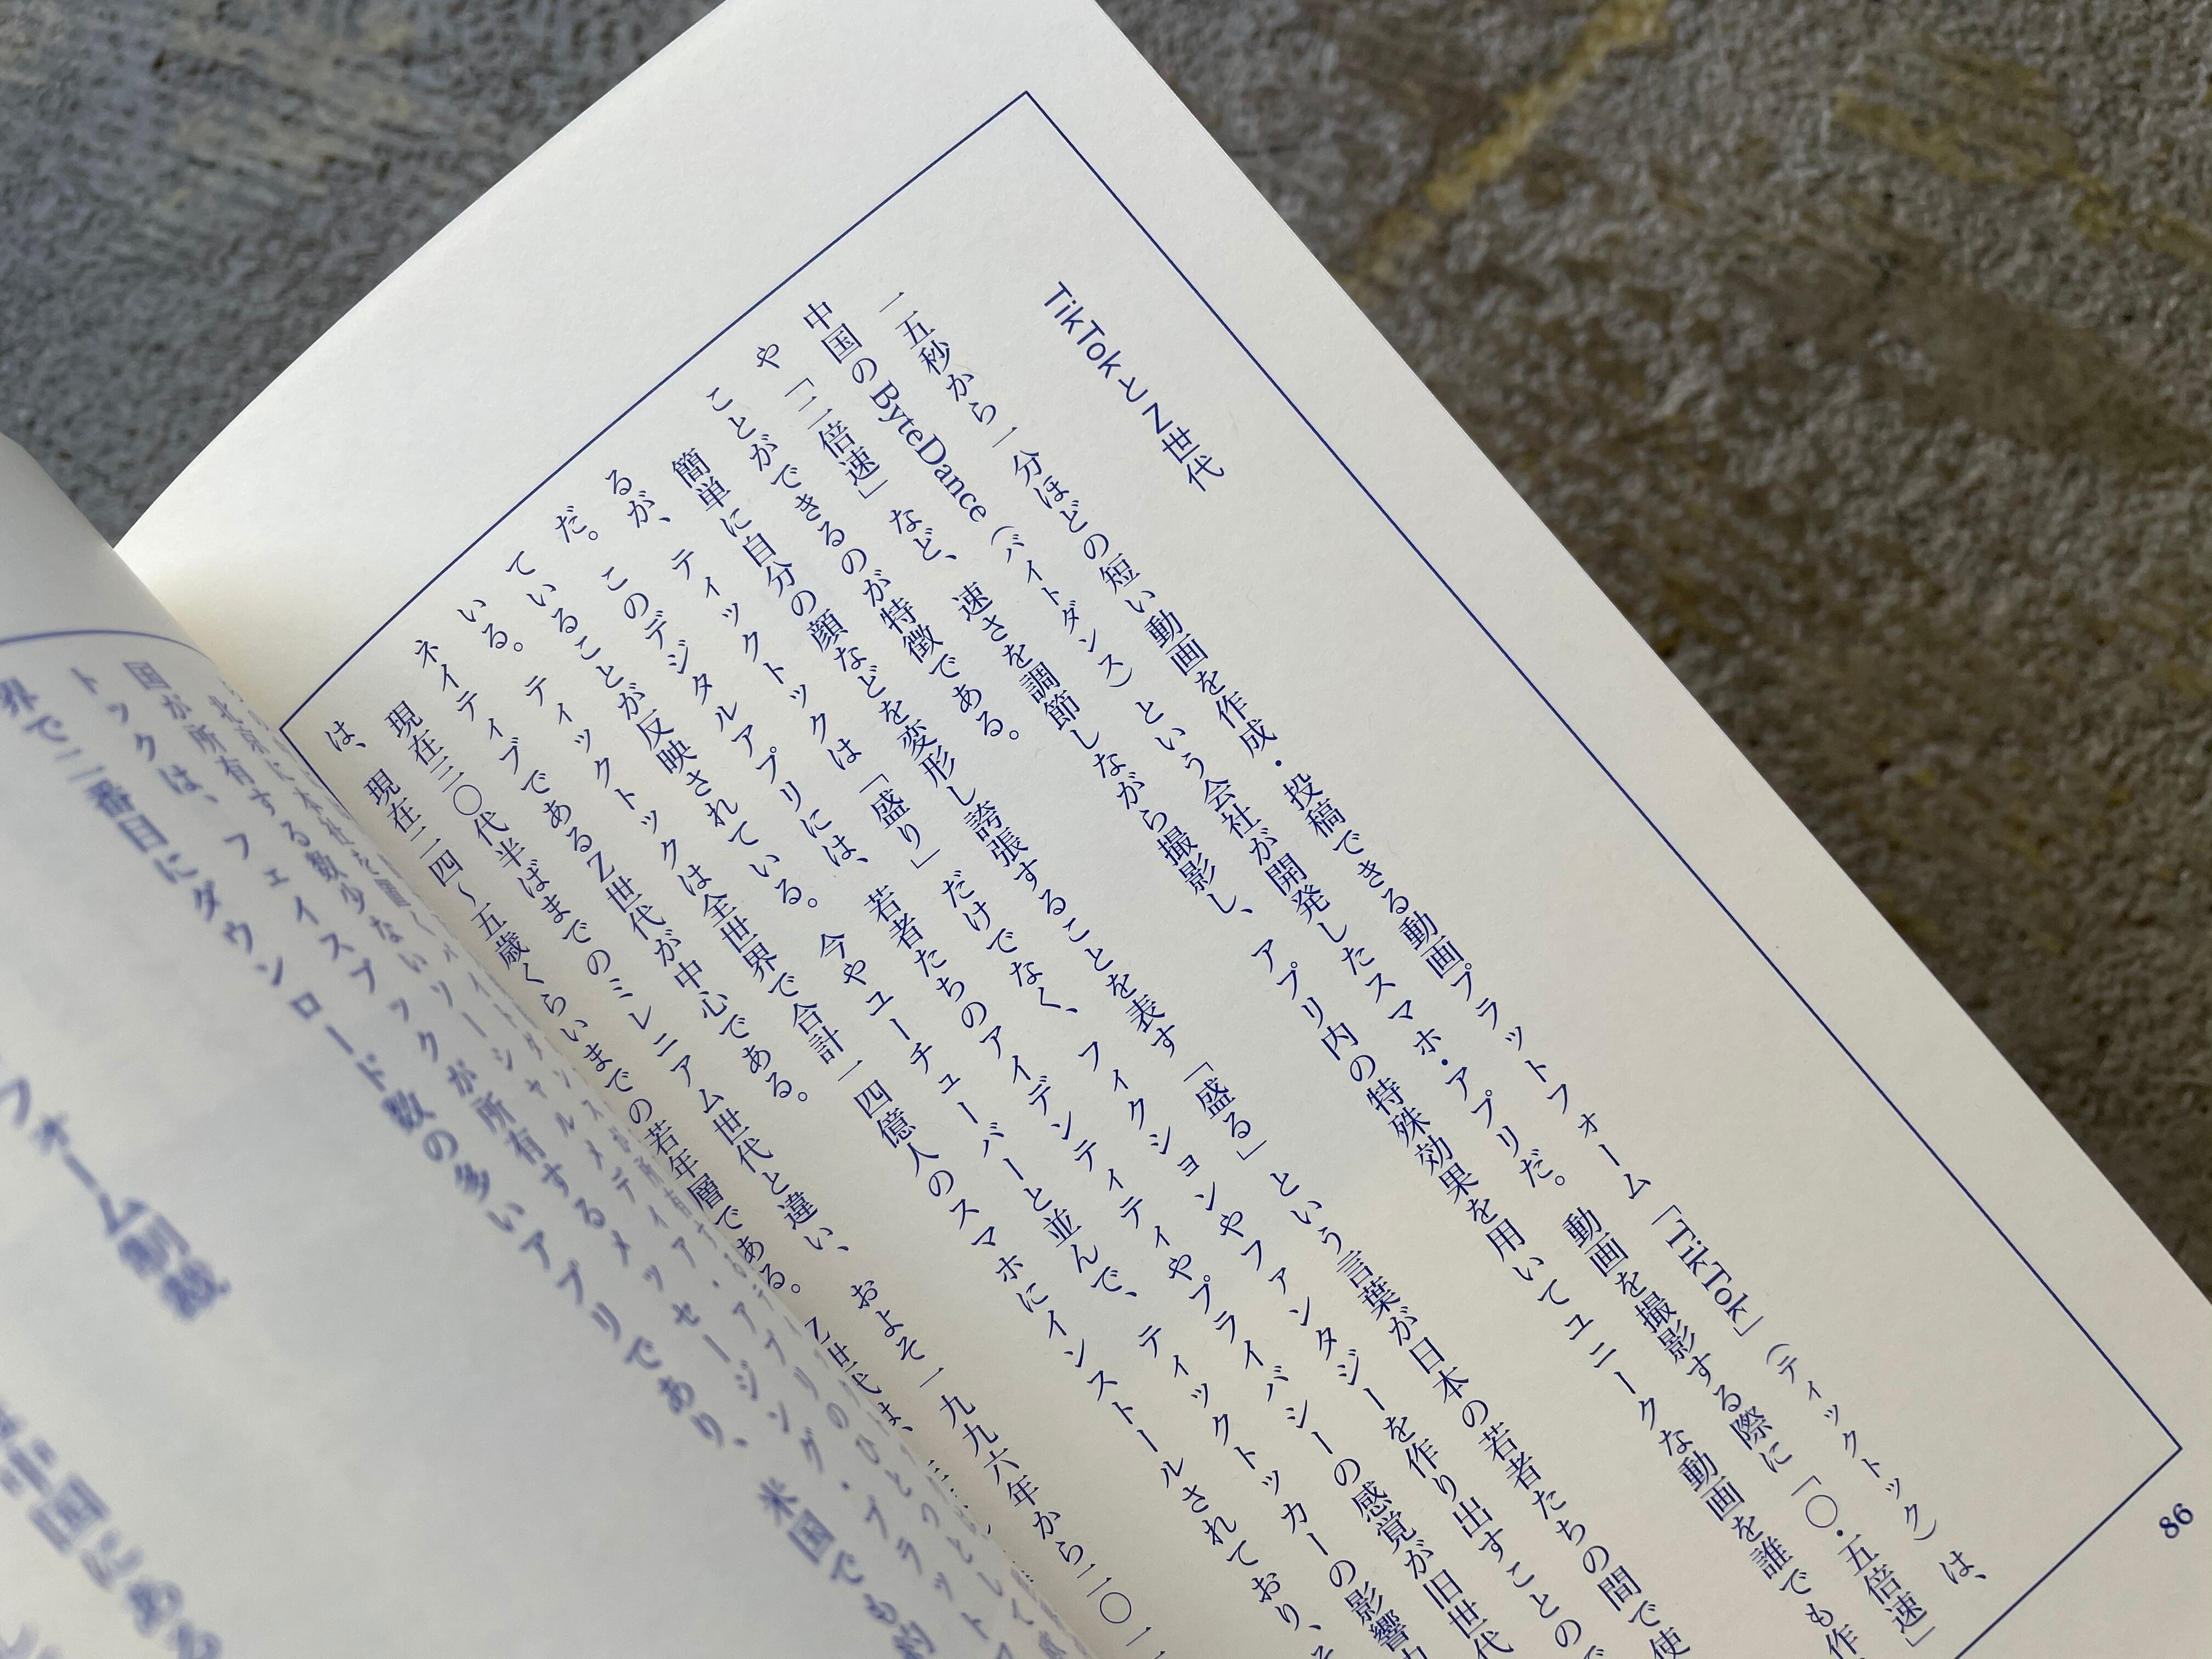 TikTokとZ世代
一五秒から一分ほどの短い動画を作成・投稿できる動画プラットフォーム「TikTok」（ティックトック）は、
中国のByteDance（バイトダンス）という会社が開発したスマホ・アプリだ。動画を撮影する際に「〇・五倍速」
や「二倍速」など、速さを調節しながら撮影し、アプリ内の特殊効果を用いてユニークな動画を誰でも作
ことができるのが特徴である。
簡単に自分の顔などを変形し誇張することを表す「盛る」という言葉が日本の若者たちの間で使
るが、ティックトックは「盛り」だけでなく、フィクションやファンタジーを作り出すことので
だ。このデジタルアプリには、若者たちのアイデンティティやプライバシーの感覚が旧世代
ていることが反映されている。今やユーチューバーと並んで、ティックトッカーの影響力
いる。ティックトックは全世界で合計一四億人のスマホにインストールされており、そ
ネイティブであるZ世代が中心である。
現在三〇代半ばまでのミレニアム世代と違い、およそ一九九六年から二〇一
は、現在二四〜五歳くらいまでの若年層である。Z世代は、
86
国が所有する数少ないソーシャルメディア・アプリのひとつとして
トックは、フェイスブックが所有するメッセージング・プラット
界で二番目にダウンロード数の多いアプリであり、米国でも約
フォーム
中国にある